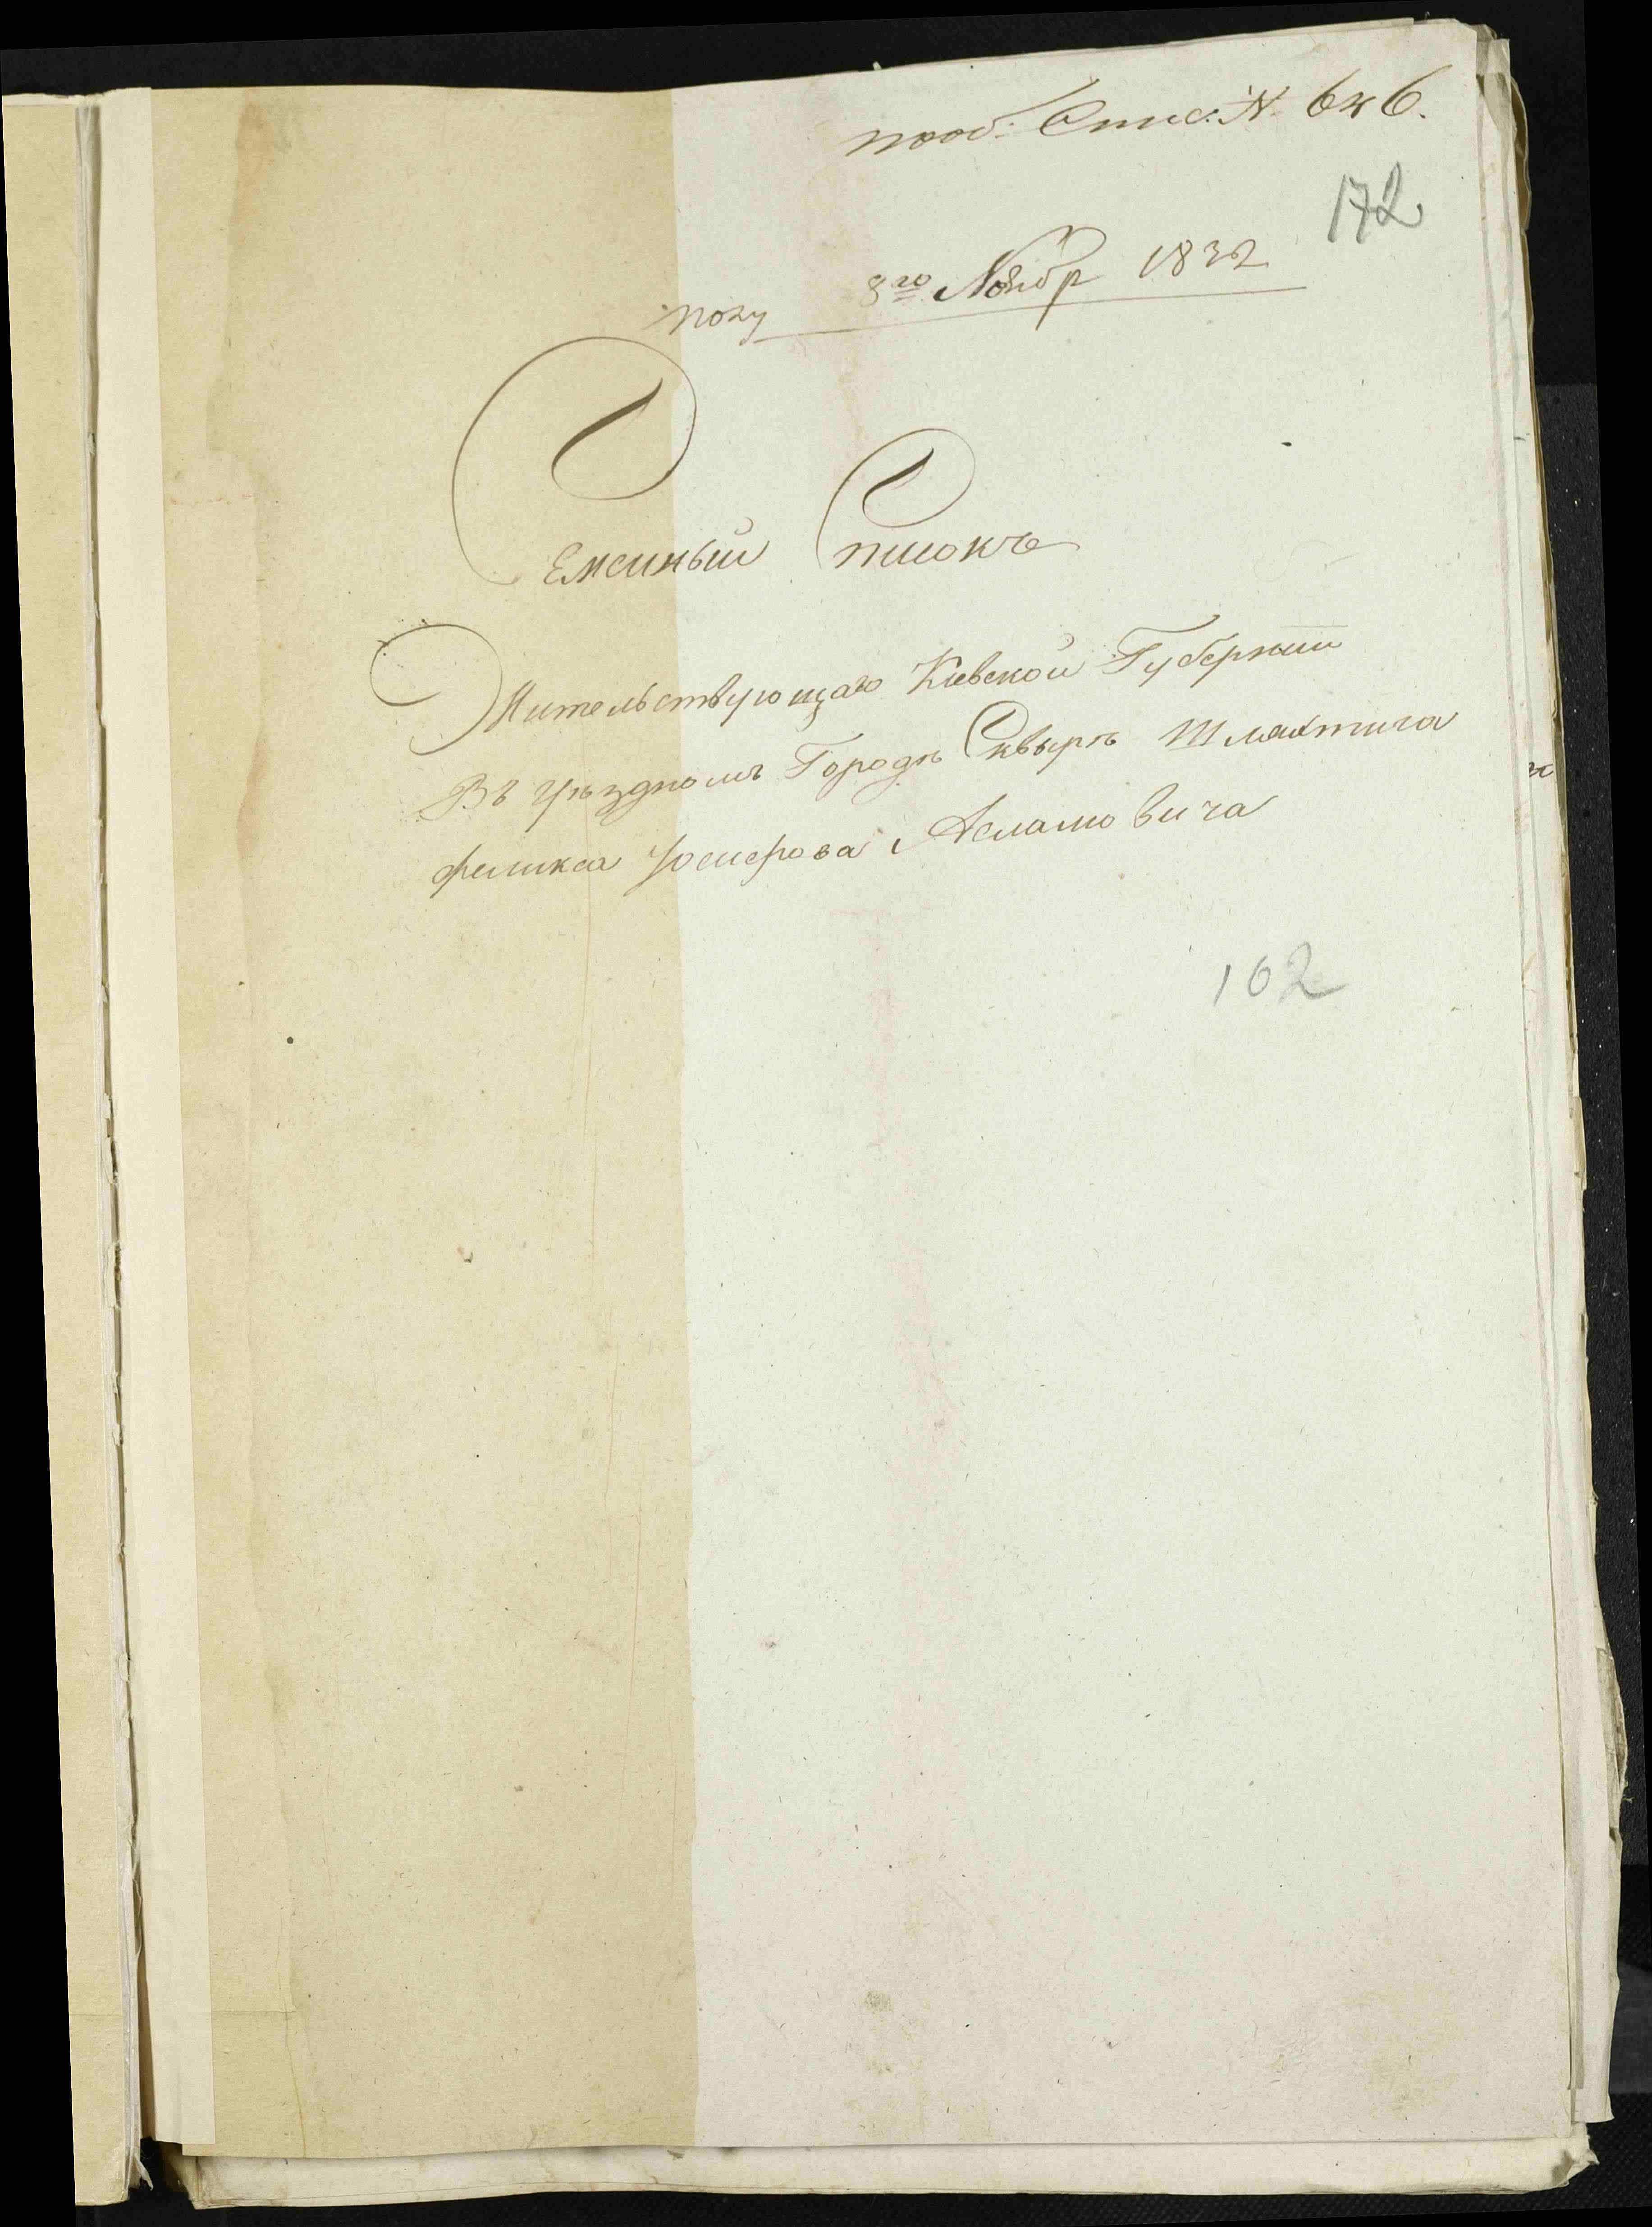 Спис: №
172
полу 8го Ноябр 1832
Семейный Списокъ
Жительствующаго Киевской Губернии
Въ уѣздномъ Городѣ Сквырѣ Шляхтича
феликса Юсифова Асламовича
102